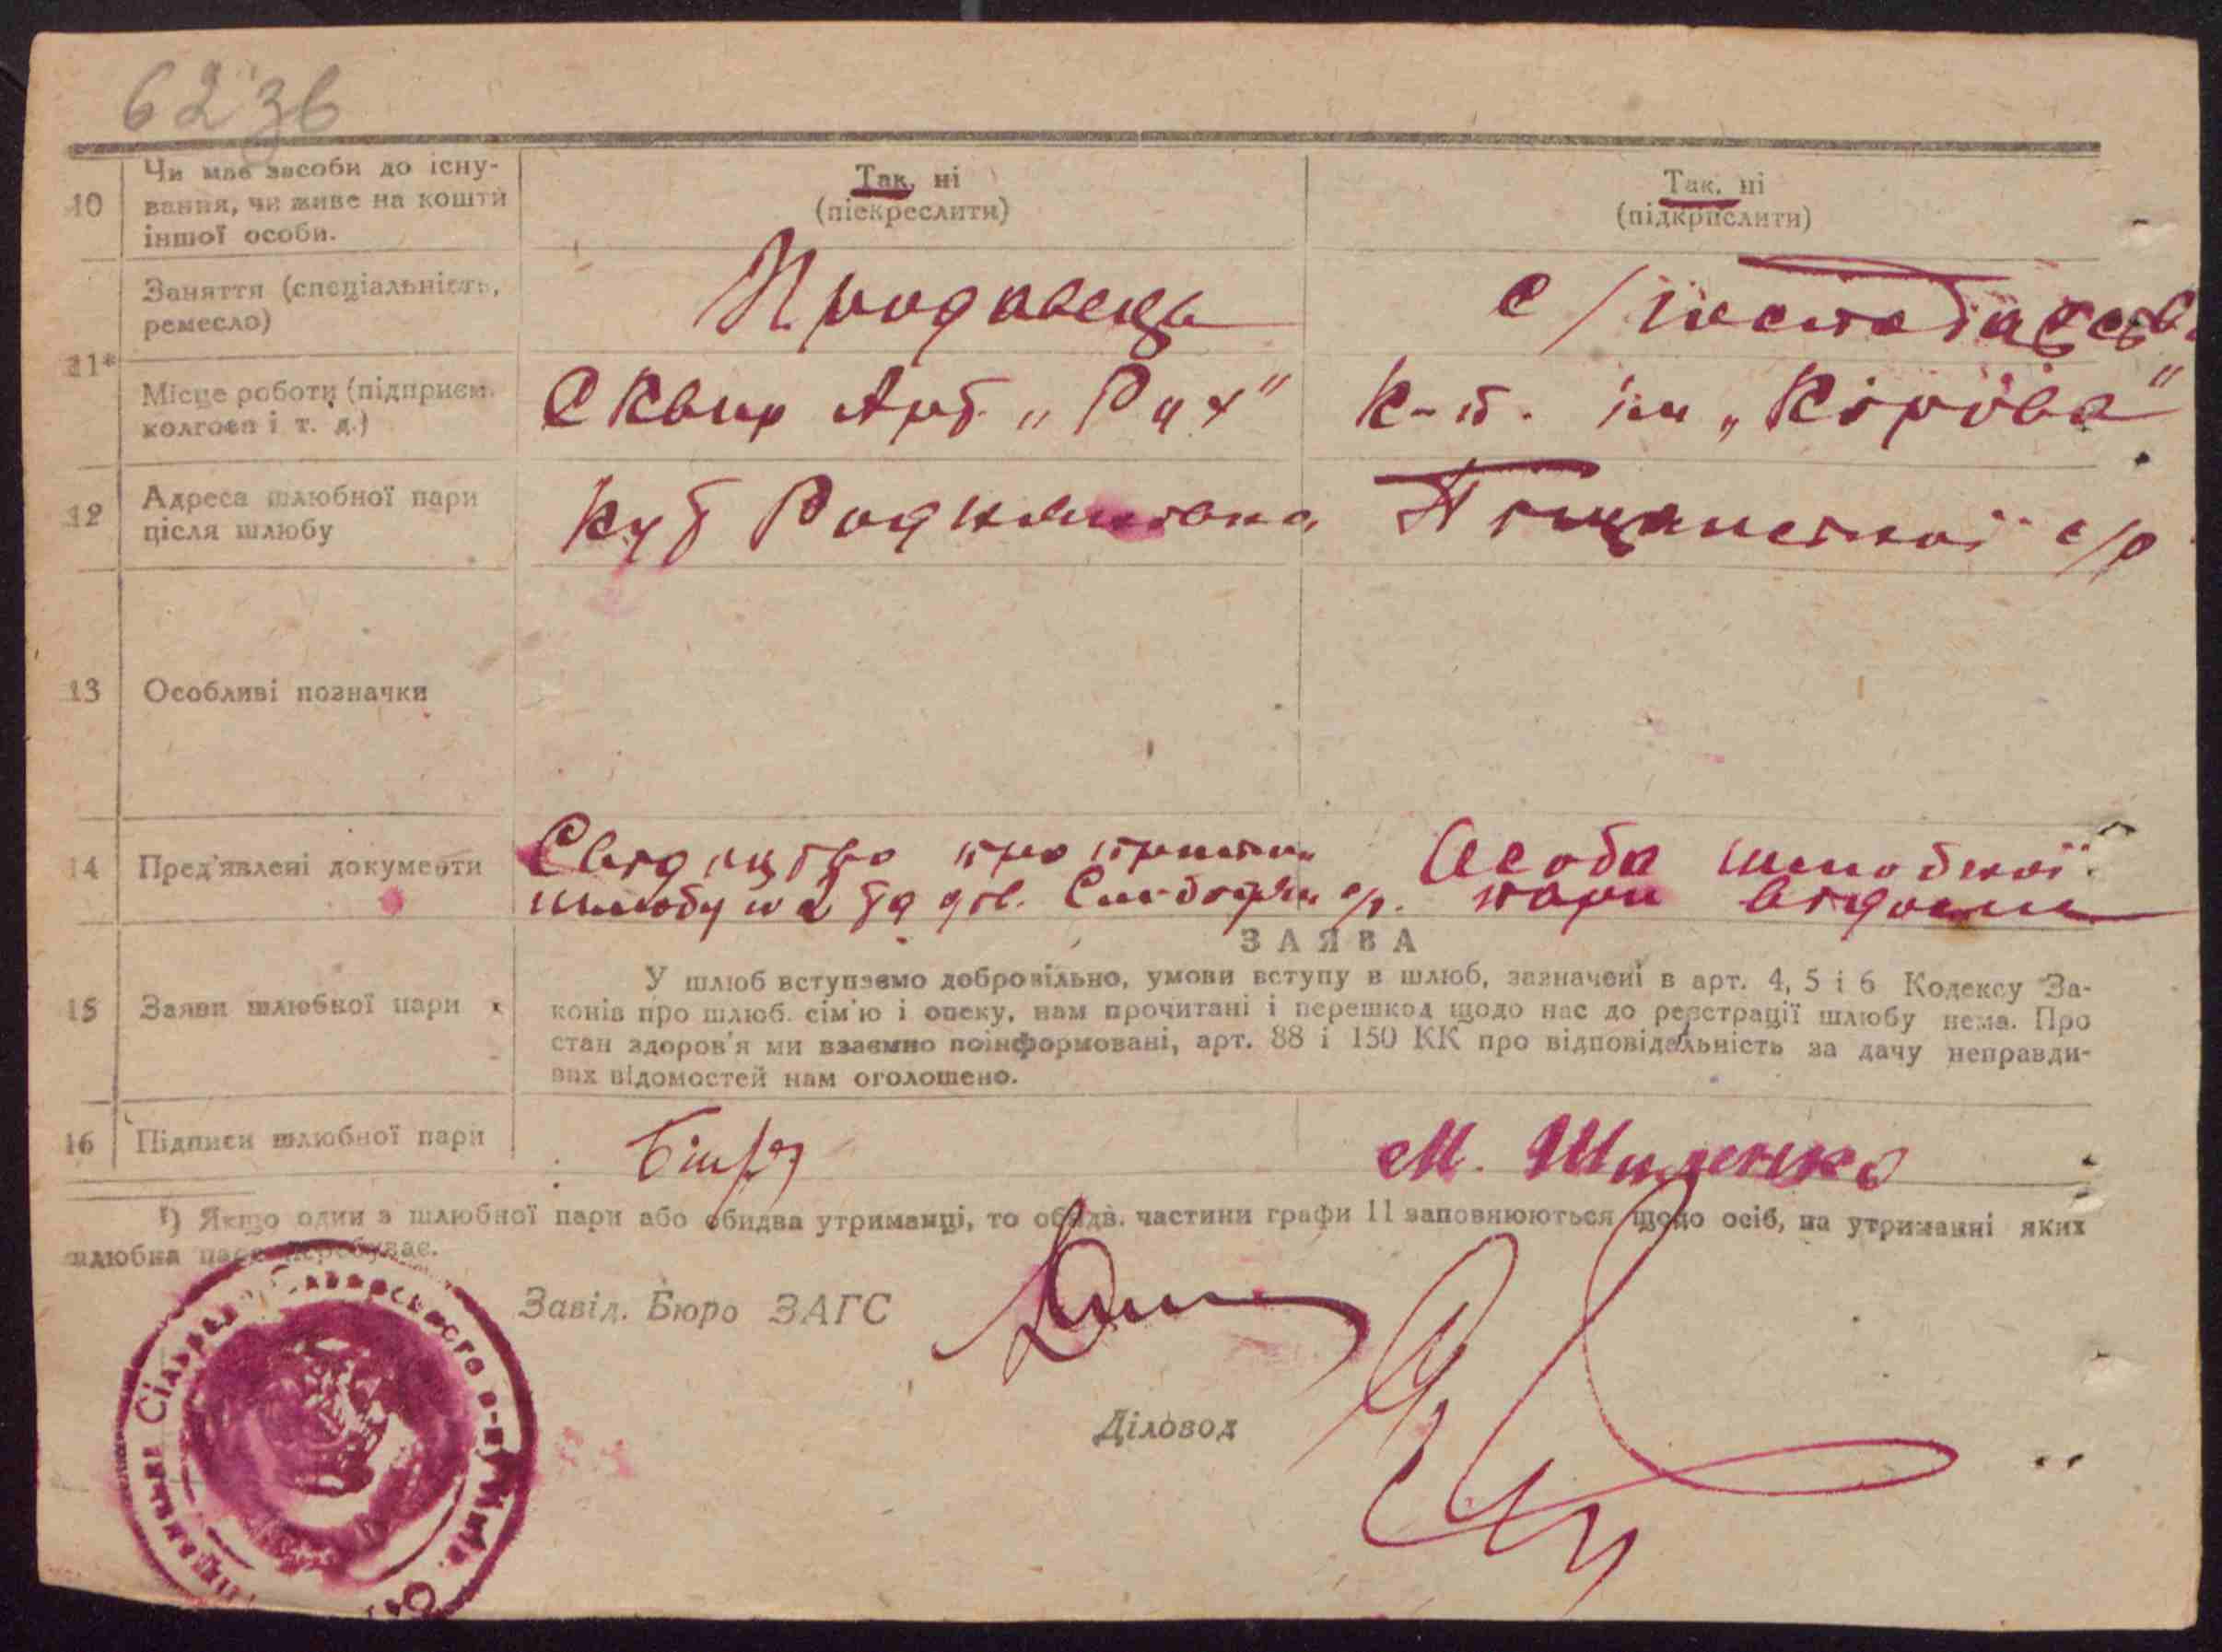 6236
10 Чи має засоби до існу-
вання, чи живе на кошти
іншої особи.
Так, ні
(піскреслити)
Так, ні
(підкрислити)
11*
Заняття (спеціальність,
ремесло)
Продавець
с/господарств
Місце роботи (підприєм.
колгосп і т. д.)
Сквир Арт. „Рух"
К-п. ім „Кірова"
12 Адреса шлюбної пари
після шлюбу
Пищанської с/р
13 Особливі позначки
14 Пред'явлені документи
Свідицтво про
шлюбу с/р.
Особа шлюбної
пари відома
ЗАЯВА
15 Заяви шлюбної пари
У шлюб вступаємо добровільно, умови вступу в шлюб, зазначені в арт. 4, 5 і 6 Кодексу За-
конів про шлюб. сім'ю і опеку, нам прочитані і перешкод щодо нас до реєстрації шлюбу нема. Про
стан здоров'я ми взаємно поінформовані, арт. 88 і 150 КК про відповідальність за дачу неправди-
вих відомостей нам оголошено.
16 Підписи шлюбної пари
М. Шиленко
¹) Якщо один з шлюбної пари або обидва утриманці, то обидв. частини графи 11 заповнюються щодо осіб, на утриманні яких
шлюбна пара перебуває.
Завід. Бюро ЗАГС
Діловод